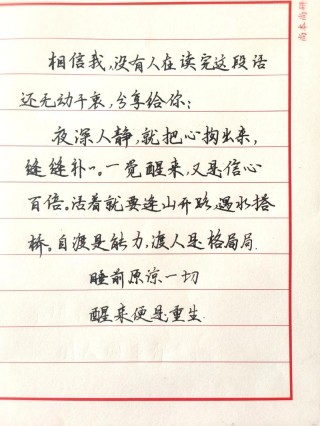 相信我,没有人在读完这段话
还无动于衷,分享给你:
夜深人静,就把心掏出来,
缝缝补补。一觉醒来,又是信心
百倍。活着就要逢山开路,遇水搭
桥。自渡是能力,渡人是格局局.
睡前原谅一切
醒来便是重生.